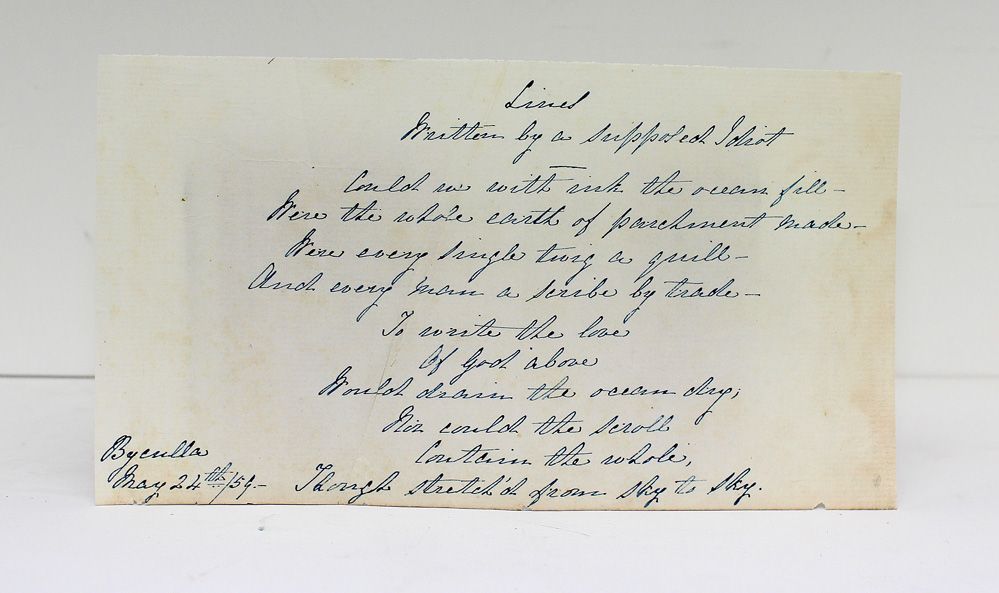 Lines
Written by a supposed Idiot
Could we with ink the ocean fill—
Were the whole earth of parchment made—
Were every single twig a quill—
And every man a scribe by trade—
To write the love
Of God above
Would drain the ocean dry;
Nor could the scroll
Contain the whole,
Though stretch'd from sky to sky.
Byculla
May 24th/59—